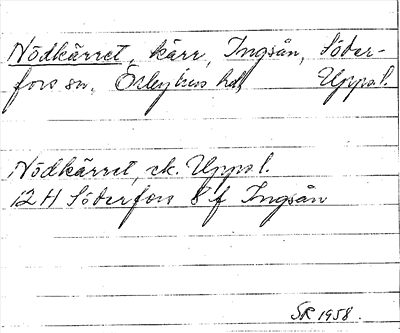 Nödkärret, kärr, Ingsån, Söder-
fors sn, Örbyhus hd, Uppsl.
Nödkärret, ek. Uppsl.
12 H Söderfors 8 f Ingsån
SR 1958.